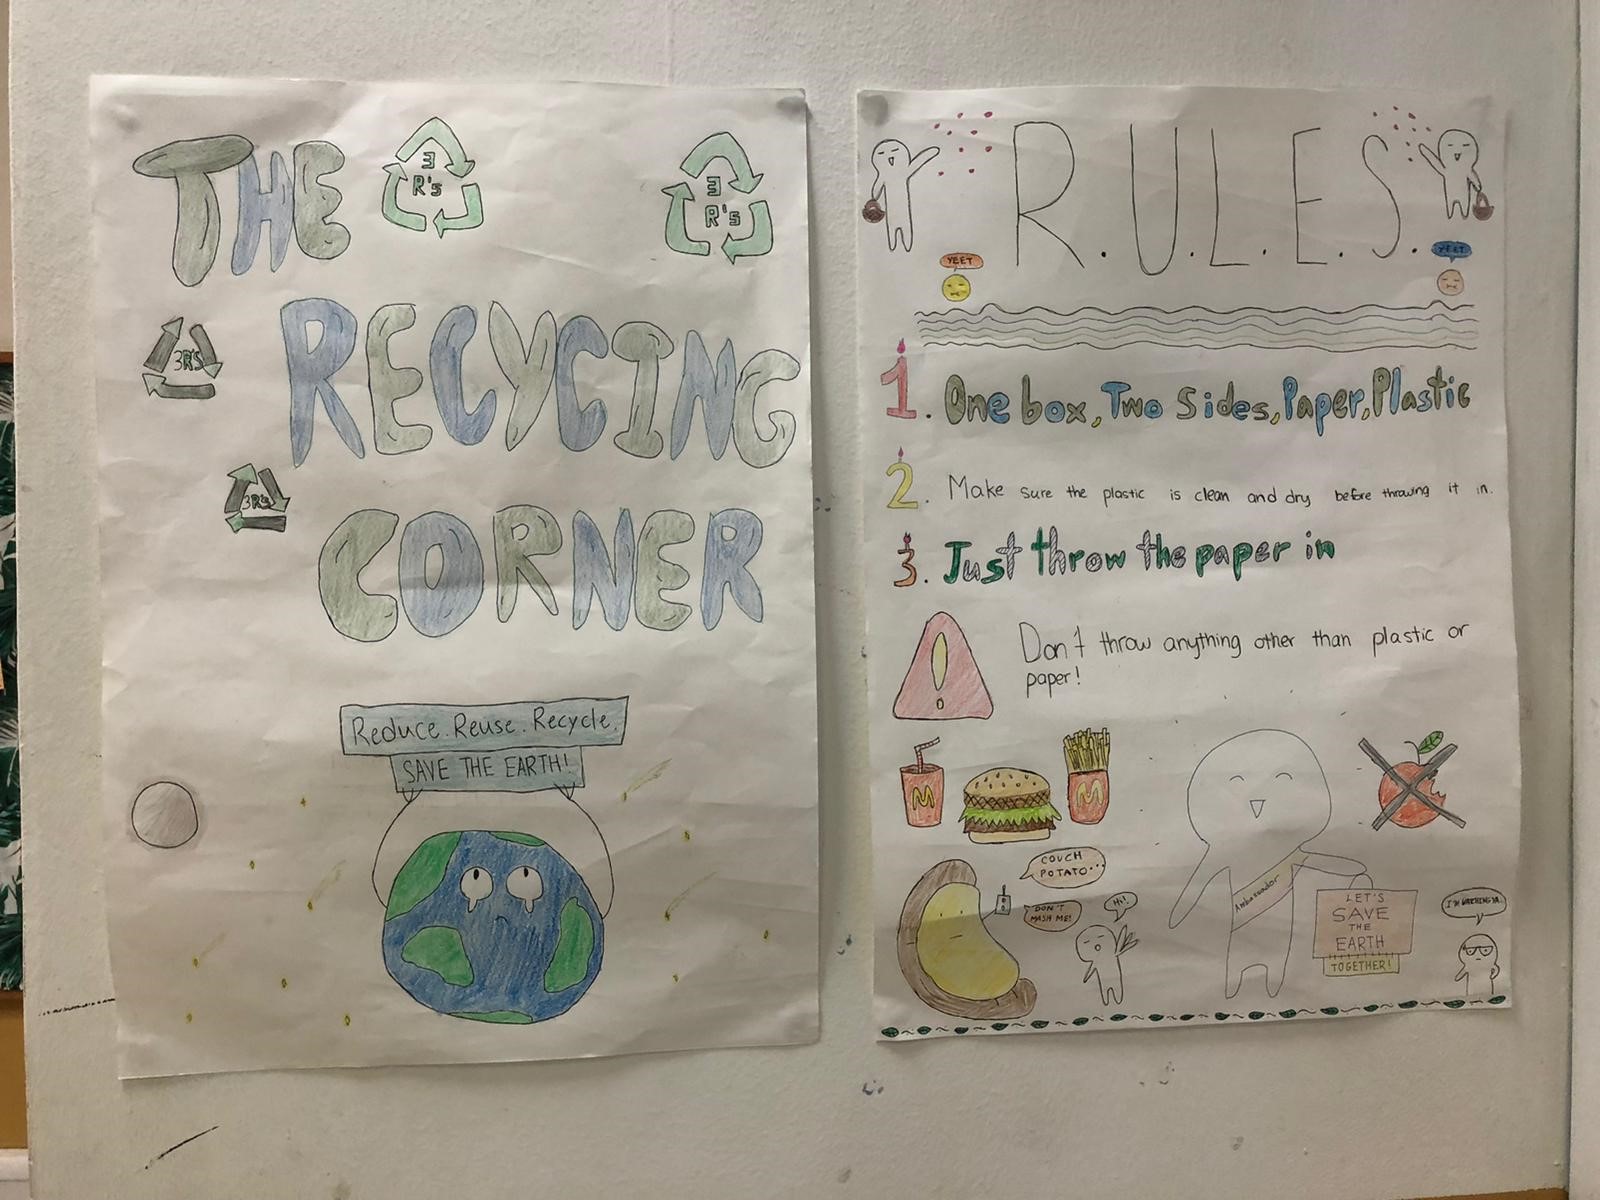 THE
3
R's
3
R's
3R'S
RECYCING
3R's
CORNER
Reduce. Reuse. Recycle.
SAVE THE EARTH!
R.U.L.E.S.
YEET
YEET
1. One box, Two Sides, Paper, Plastic
2. Make sure the plastic is clean and dry before throwing it in.
3. Just throw the paper in
!
Don't throw anything other than plastic or
paper!
M
M
COUCH
POTATO...
DON'T
MASH ME!
Hi!
Ambassador
LET'S
SAVE
THE
EARTH
TOGETHER!
I'M WATCHING YA.